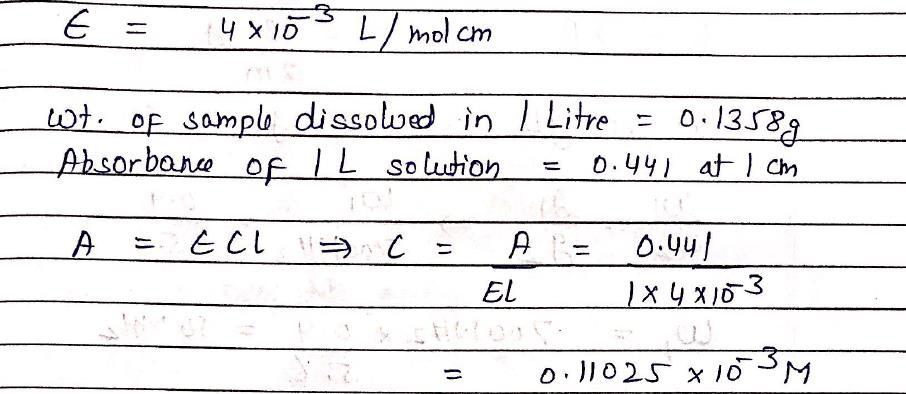 E = 4 x 10⁻³ L/mol cm
Wt. of sample dissolved in 1 Litre = 0.1358g
Absorbance of 1 L solution = 0.441 at 1 cm
A = ECl ⇒ C = A/El = 0.441/1 x 4 x 10⁻³
= 0.11025 x 10⁻³ M